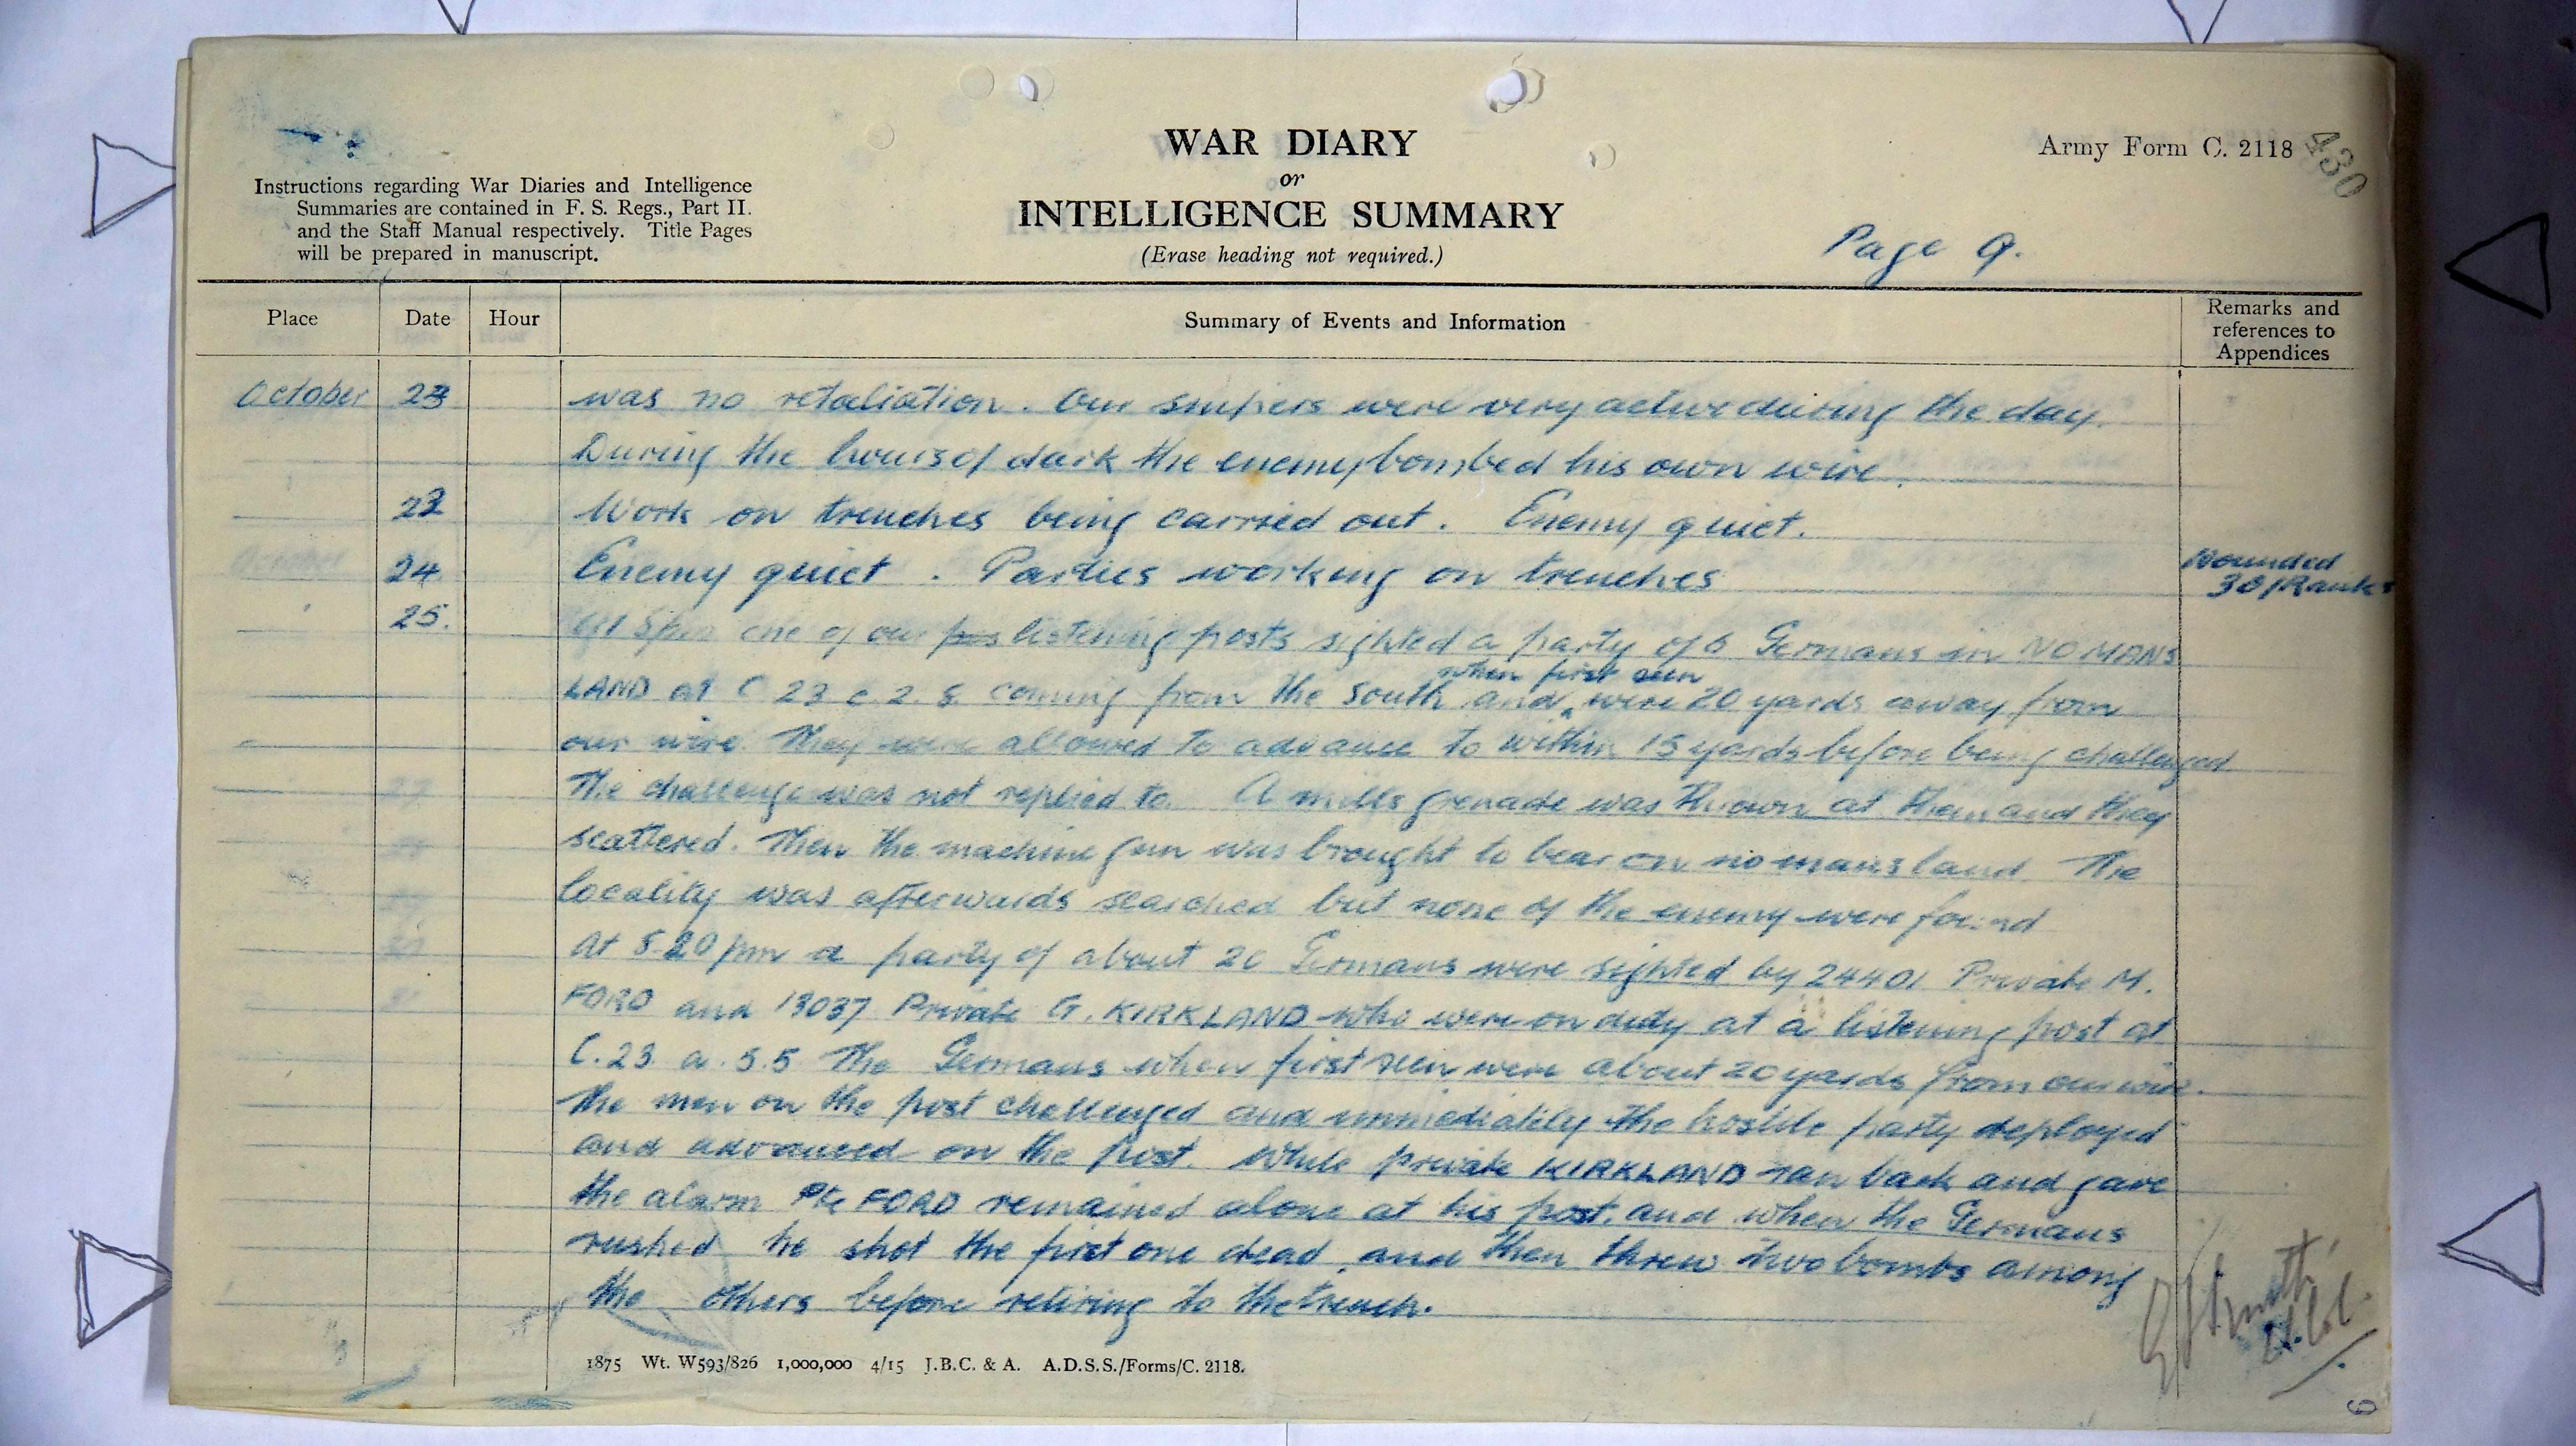 WAR DIARY
or
INTELLIGENCE SUMMARY
(Erase heading not required.)
Army Form C. 2118
430
Instructions regarding War Diaries and Intelligence
Summaries are contained in F. S. Regs., Part II.
and the Staff Manual respectively. Title Pages
will be prepared in manuscript.
Page 9.
Place Date Hour Summary of Events and Information Remarks and
references to
Appendices
October 23 was no retaliation. Our snipers were very active during the day.
During the hours of dark the enemy bombed his own wire.
23 Work on trenches being carried out. Enemy quiet.
24 Enemy quiet. Parties working on trenches Wounded
3 O/Ranks
25. At 5pm one of our pos listening posts sighted a party of 6 Germans in NO MANS
LAND at C 23 c. 2. 8 coming from the south and when first seen were 20 yards away from
our wire. They were allowed to advance to within 15 yards before being challenged
The challenge was not replied to. A mills grenade was thrown at them and they
scattered. Then the machine gun was brought to bear on no mans land. The
locality was afterwards searched but none of the enemy were found
At 5-20 pm a party of about 20 Germans were sighted by 24401 Private M.
FORD and 13037 Private G. KIRKLAND who were on duty at a listening post at
C. 23. a. 5.5 The Germans when first seen were about 20 yards from our wire.
The men on the post challenged and immediatily the hostile party deployed
and advanced on the post. While private KIRKLAND ran back and gave
the alarm Pte FORD remained alone at his post, and when the Germans
rushed he shot the first one dead, and then threw two bombs among
the others before retiring to the trench.
1875 Wt. W593/826 1,000,000 4/15 J.B.C. & A. A.D.S.S./Forms/C. 2118.